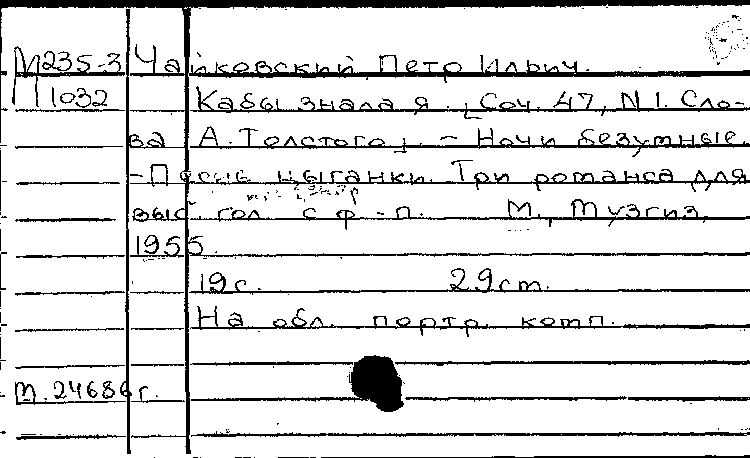 М235-3 Чайковский, Петр Ильич.
1032 Кабы знала я. [Соч. 47, N 1. Сло-
ва А. Толстого]. - Ночи безумные.
- Песнь цыганки. Три романса для
выс. гол. с ф-п. М., Музгиз,
1955.
19 с. 29 см.
На обл. портр. комп.
М. 24686 г.